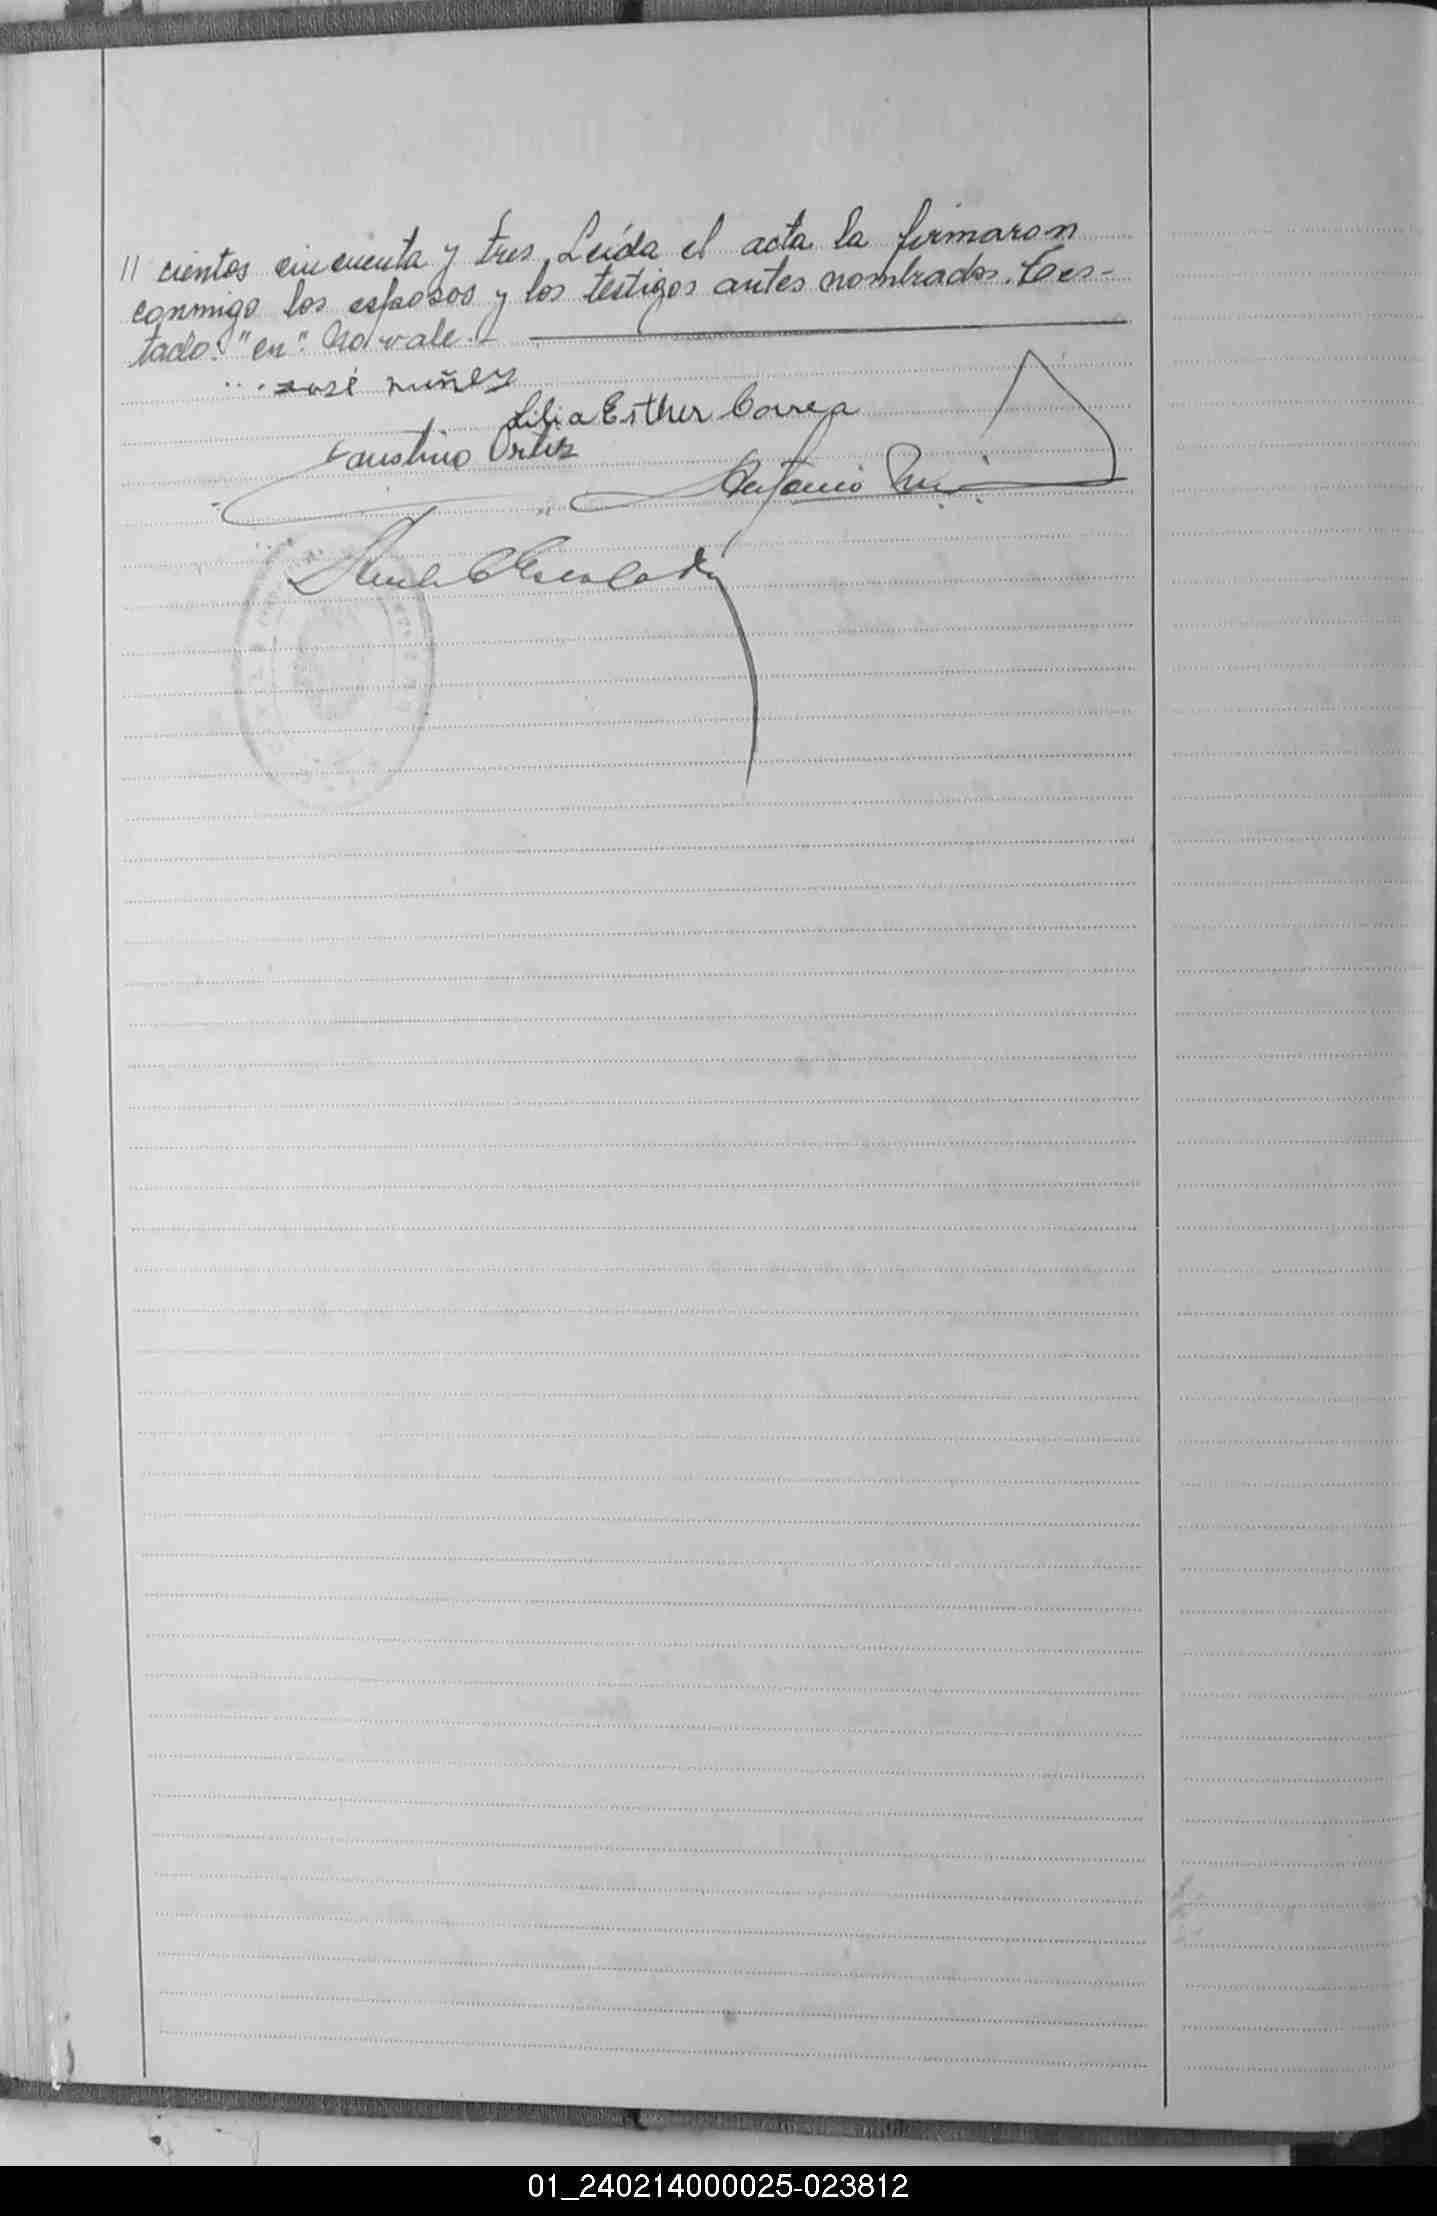 // cientos cincuenta y tres. Leída el acta la firmaron
conmigo los esposos y los testigos antes nombrados. Tes-
tado: "en". No vale.
José nuñez
Lilia Esther Correa
Faustino Ortiz
Antonio
01_240214000025-023812